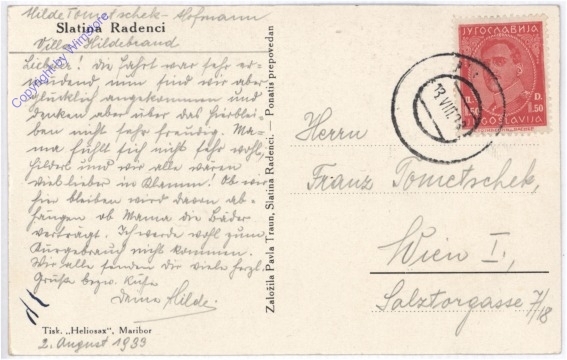 Hilde Tometschek-Hofmann
Slatina Radenci
Villa Hildebrand
Copyright by Wimpiore
Liebste! Die Fahrt war sehr er-
müdend, nun sind wir aber
glücklich angekommen und
denken aber über das Hierblei-
ben nicht sehr freudig. Ma-
ma fühlt sich nicht sehr wohl,
Hilderl und wir alle wären
viel lieber in Klamm! Ob wir
hier bleiben wird davon ab-
hängen ob Mama die Bäder
verträgt. Ich werde wohl zum
Kurgebrauch nicht kommen.
Wir alle senden Dir viele herzl.
Grüße bezw. Küße
Deine Hilde.
Tisk. „Heliosax”, Maribor
2. August 1933
Založila Pavla Traun, Slatina Radenci. — Ponatis prepovedan
ЈУГОСЛАВИЈА
D. Д.
1.50 1.50
JUGOSLAVIJA
Herrn
Franz Tometschek,
Wien I.,
Salztorgasse 7/18